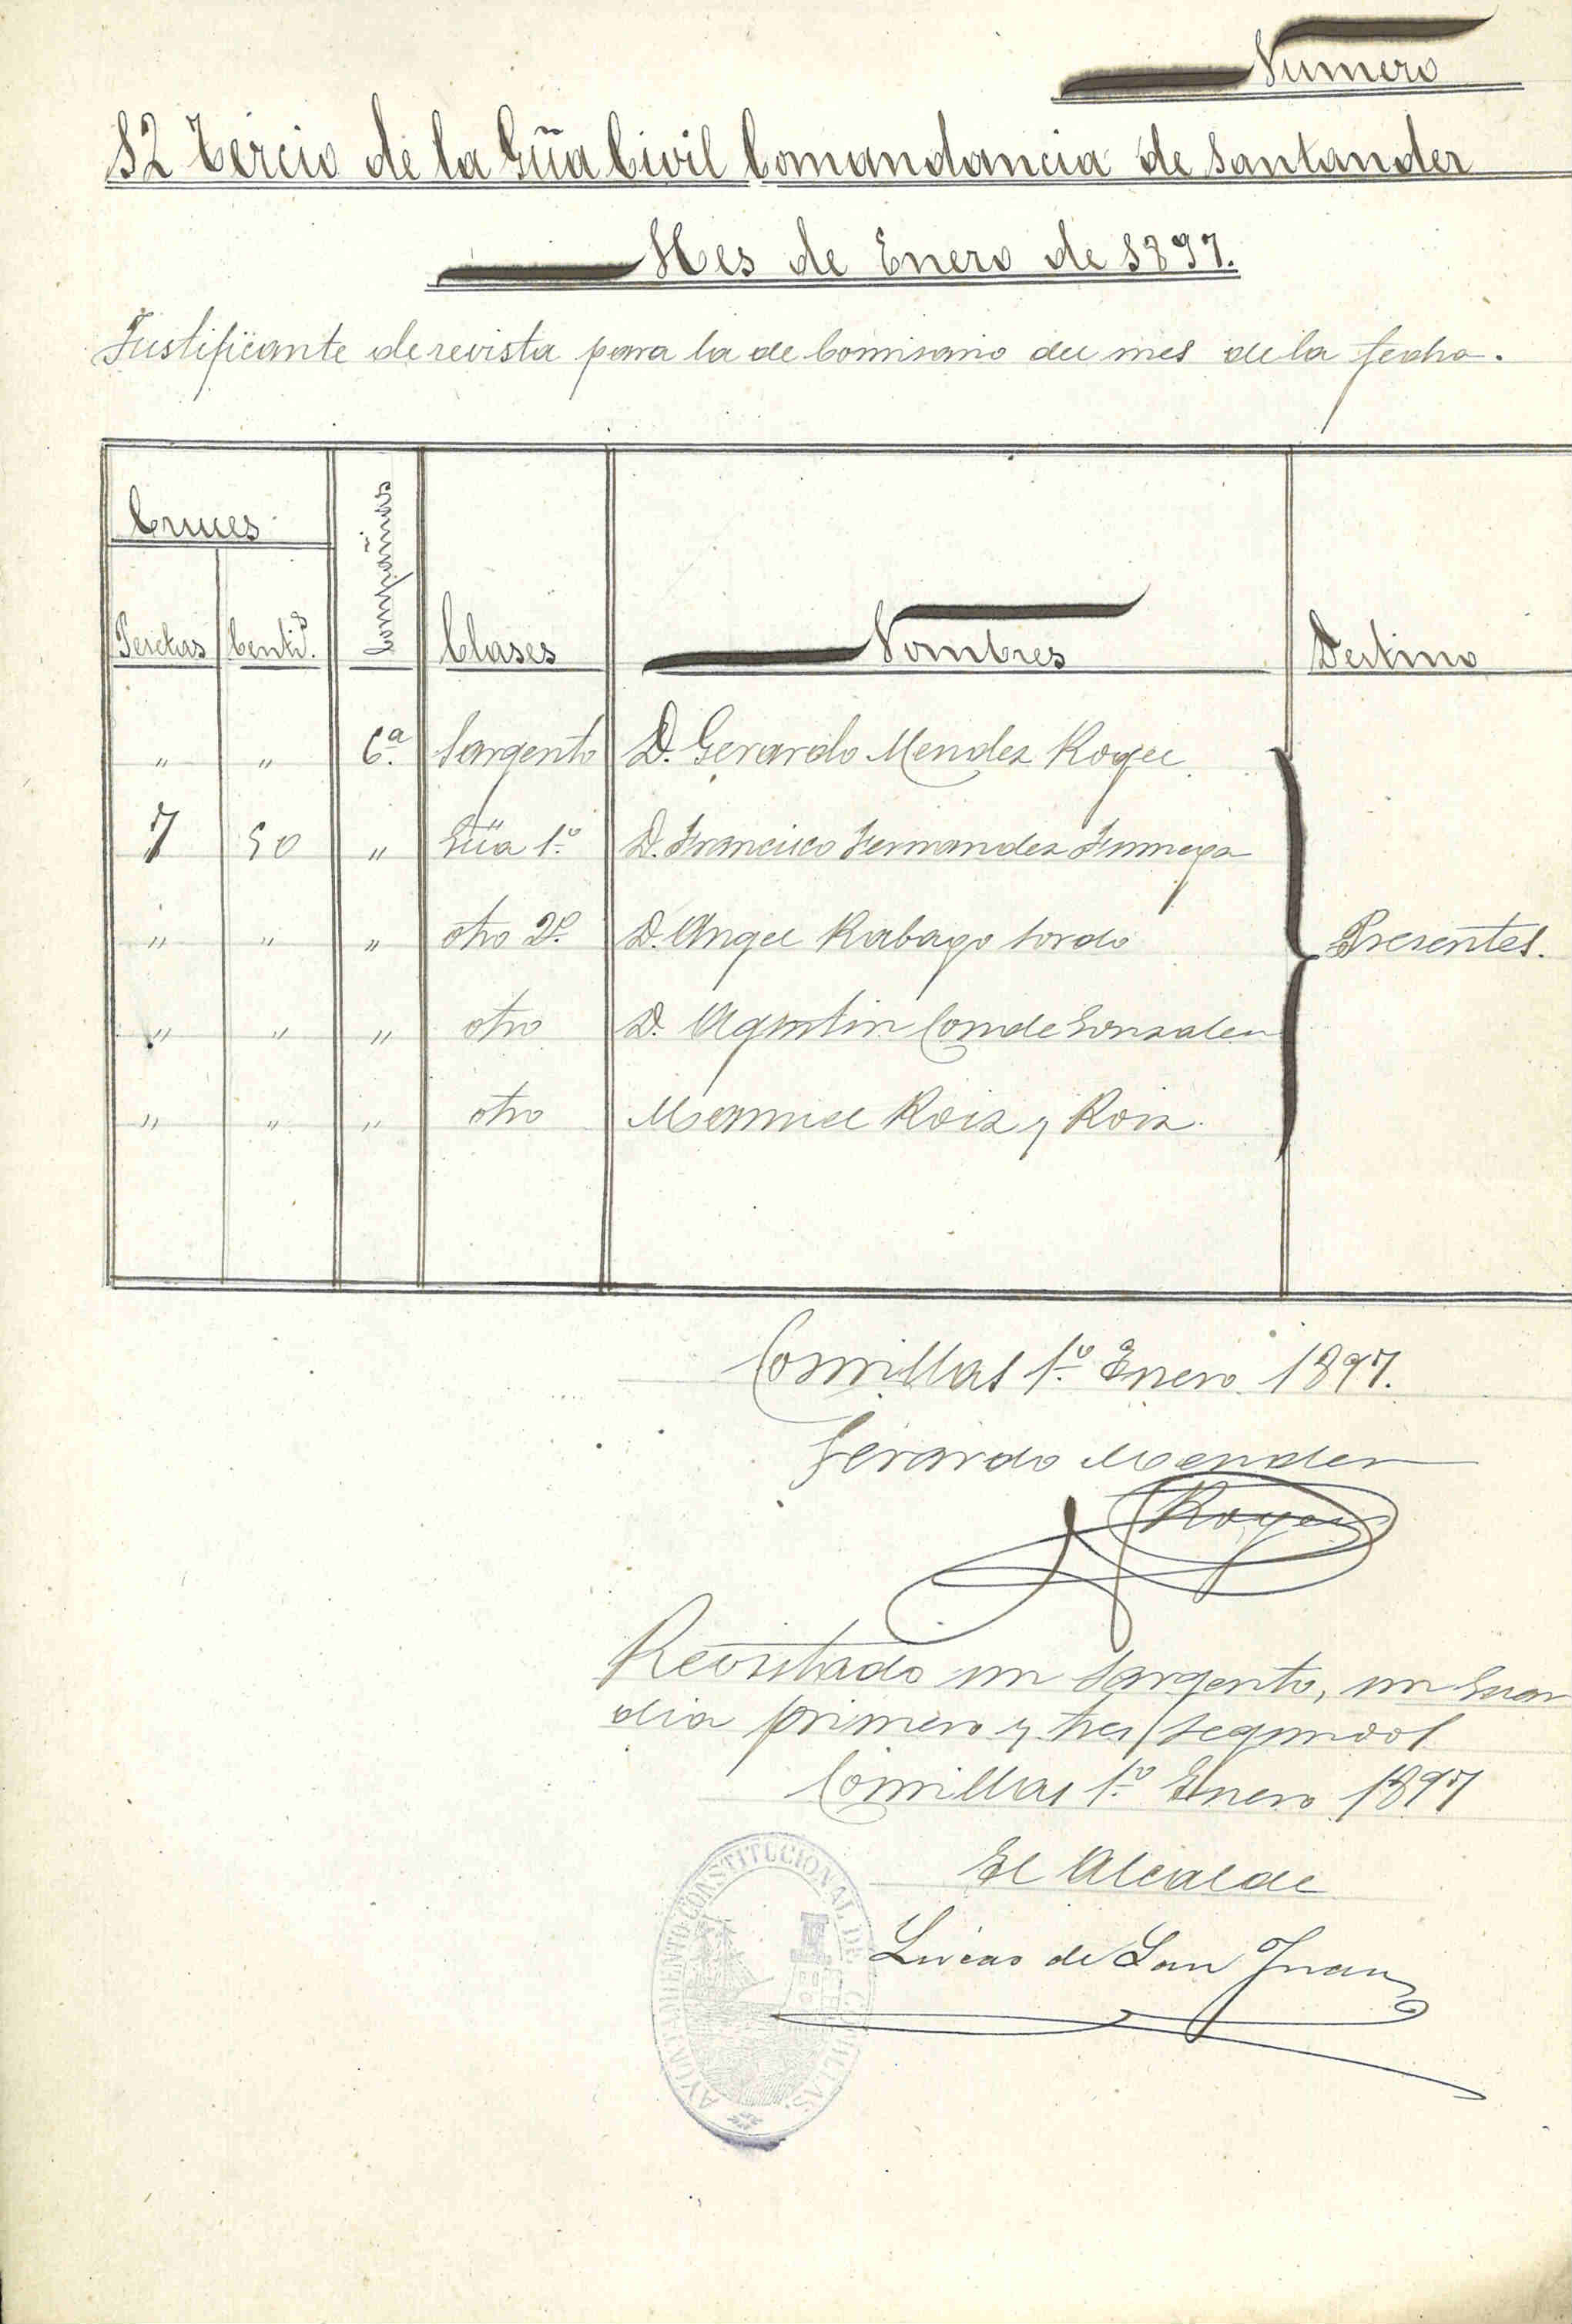 Número
12 Tercio de la Güa Civil Comandancia de Santander
Mes de Enero de 1897.
Justificante de revista para la de Comisario del mes de la fecha.
Cruces
Compañias
Pesetas Centis. Clases Nombres Destino
" " 6ª Sargento D. Gerardo Mendez
7 50 " Güa 1º D. Francisco Fernandez
" " " otro 2º D. Angel Rabago Sordo
Presentes.
" " " otro D. Agustin Conde Gonzalez
" " " otro Manuel Roiz y Roiz.
Comillas 1º Enero 1897.
Gerardo Mendez
Revistado un Sargento, un Guar
dia primero y tres segundos
Comillas 1º Enero 1897
El Alcalde
Lucas de San Juan
AYUNTAMIENTO CONSTITUCIONAL DE COMILLAS